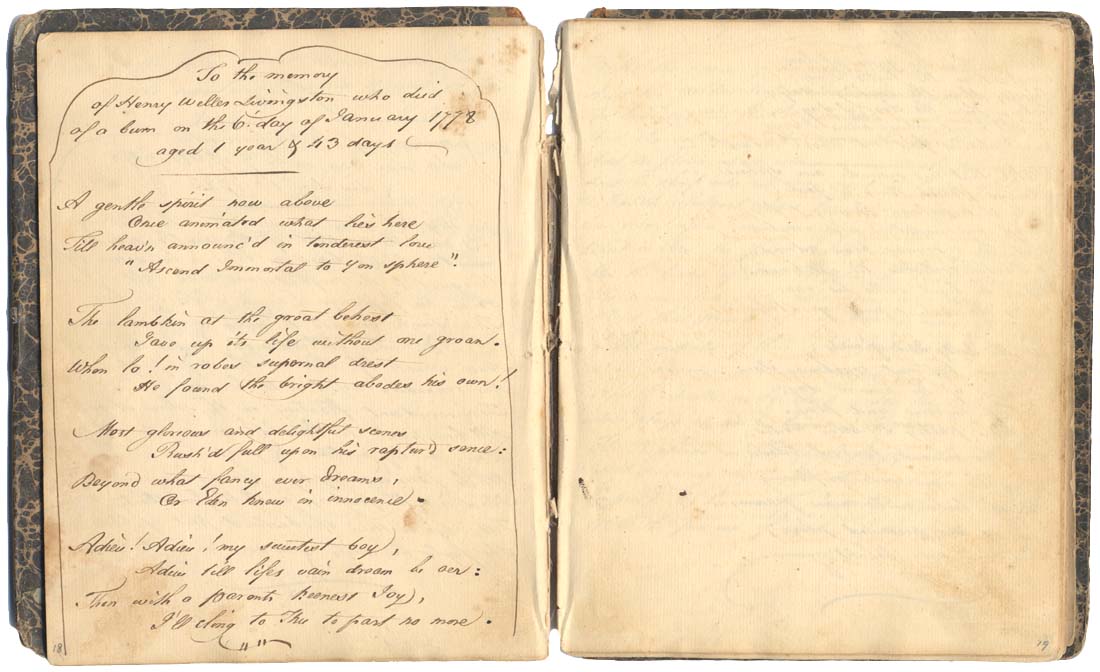 To the memory
of Henry Weller Livingston who died
of a burn on the 6. day of January 1778
aged 1 year & 43 days
A gentle spirit now above
Once animated what lies here
Till heav'n announc'd in tenderest love
"Ascend Immortal to yon sphere".
The lambkin at the great behest
Gave up its life without one groan.
When lo! in robes supernal drest
He found the bright abodes his own!
Most glorious and delightful scenes
Rush'd full upon his raptur'd sence:
Beyond what fancy ever dreams,
Or Eden knew in innocence.
Adieu! Adieu! my sweetest boy,
Adieu till lifes vain dream be oer:
Then with a parents keenest Joy,
I'll cling to Thee to part no more.
18
19